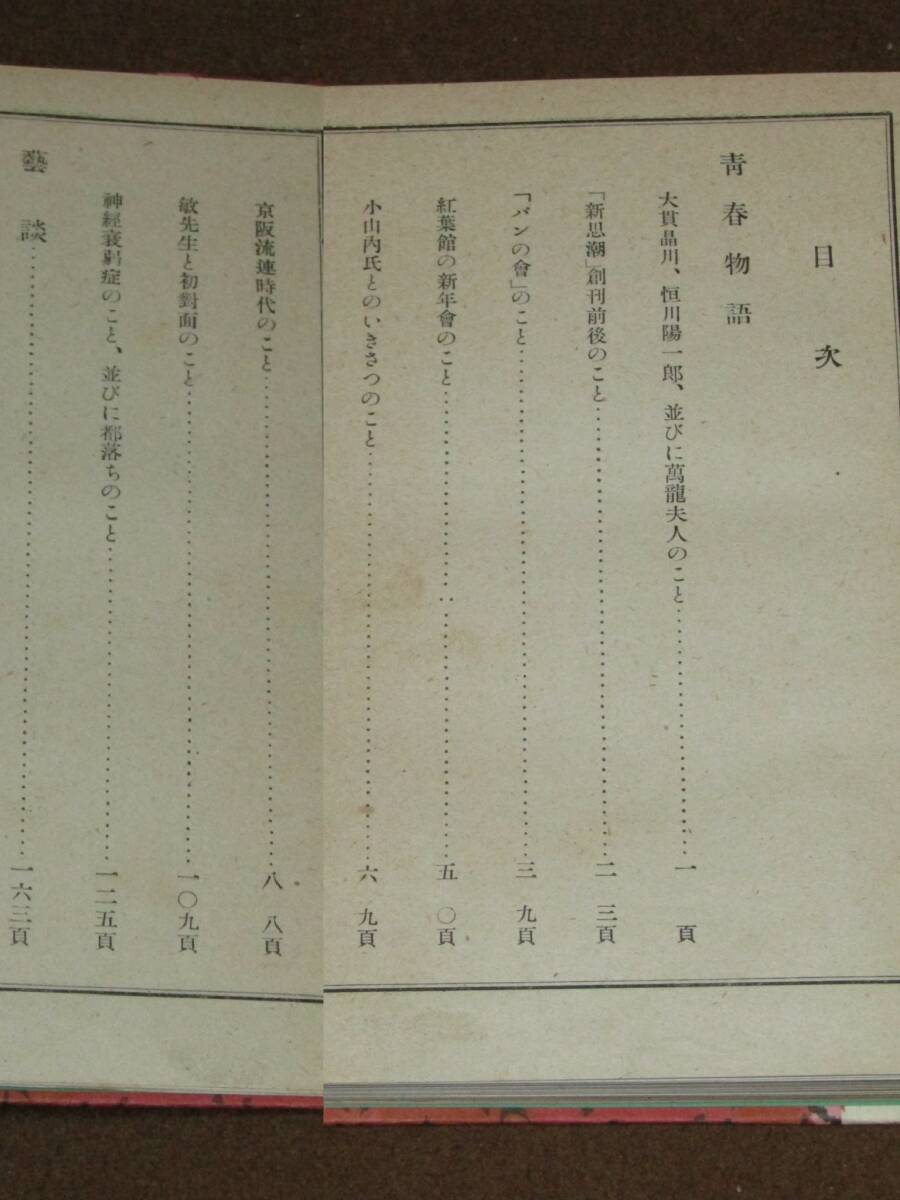 目次
青春物語
大貫晶川、恒川陽一郎、並びに萬龍夫人のこと……一頁
「新思潮」創刊前後のこと……二三頁
「パンの會」のこと……三九頁
紅葉館の新年會のこと……五〇頁
小山内氏とのいきさつのこと……六九頁
京阪流連時代のこと……八八頁
敏先生と初對面のこと……一〇九頁
神經衰弱症のこと、並びに都落ちのこと……一二五頁
藝談……一六三頁